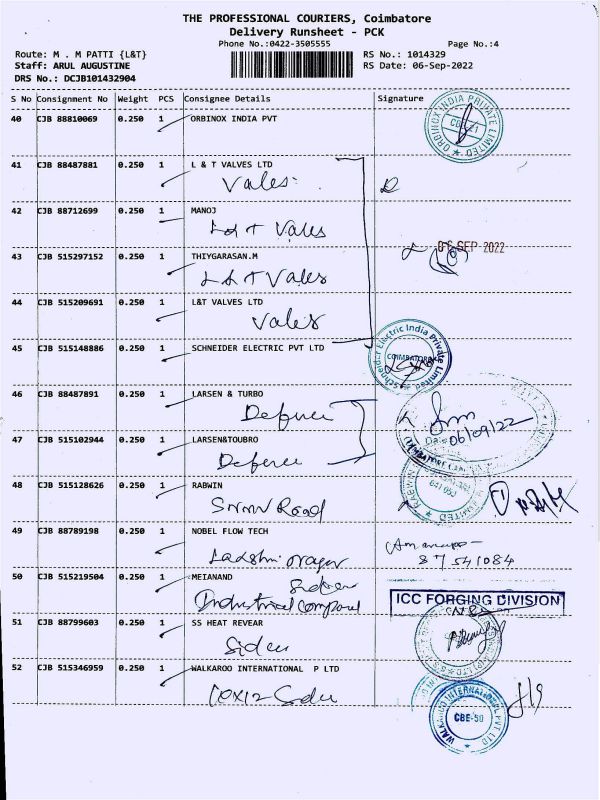 THE PROFESSIONAL COURIERS, Coimbatore
Delivery Runsheet - PCK
Phone No.:0422-3505555
Page No.:4
Route: M . M PATTI {L&T}
RS No.: 1014329
Staff: ARUL AUGUSTINE
RS Date: 06-Sep-2022
DRS No.: DCJB101432904
S No Consignment No Weight PCS Consignee Details Signature
40 CJB 88810069 0.250 1 ORBINOX INDIA PVT
ORBINOX INDIA PRIVATE LIMITED
41 CJB 88487881 0.250 1 L & T VALVES LTD
Vales
42 CJB 88712699 0.250 1 MANOJ
L & T Vales
06 SEP 2022
43 CJB 515297152 0.250 1 THIYGARASAN.M
L & T Vales
44 CJB 515209691 0.250 1 L&T VALVES LTD
Vales
45 CJB 515148886 0.250 1 SCHNEIDER ELECTRIC PVT LTD
Schneider Electric India Private Limited
COIMBATORE
46 CJB 88487891 0.250 1 LARSEN & TURBO
Defence
06/09/22
47 CJB 515102944 0.250 1 LARSEN&TOUBRO
Defence
48 CJB 515128626 0.250 1 RABWIN
Road
49 CJB 88789198 0.250 1 NOBEL FLOW TECH
Lakshmi nagar
50 CJB 515219504 0.250 1 MEIANAND
Industrial
ICC FORGING DIVISION
51 CJB 88799603 0.250 1 SS HEAT REVEAR
52 CJB 515346959 0.250 1 WALKAROO INTERNATIONAL P LTD
WALKAROO INTERNATIONAL PVT LTD
CBE-50